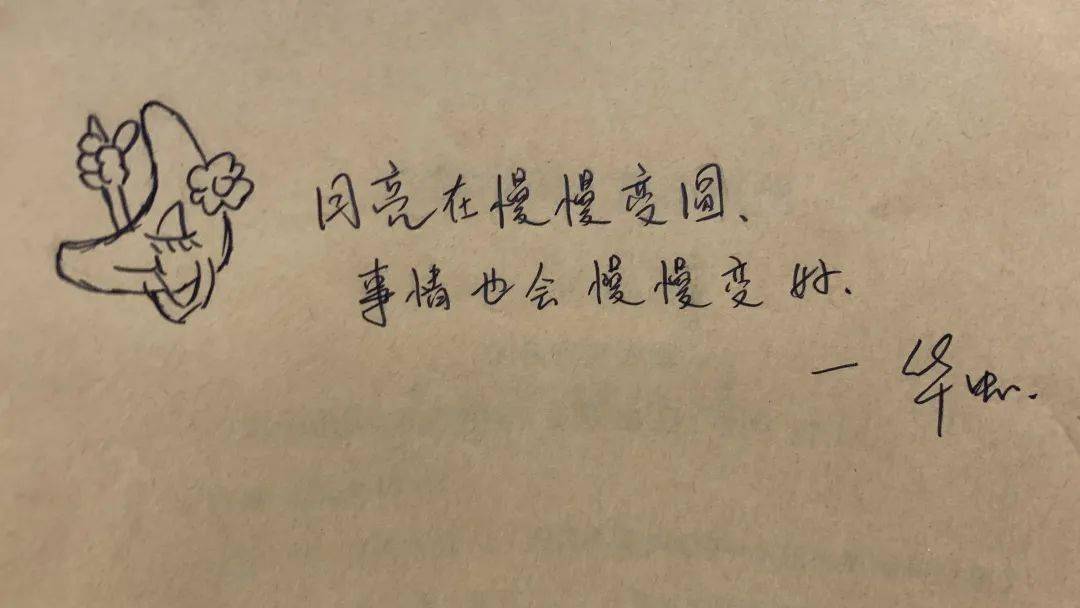 月亮在慢慢变圆、
事情也会慢慢变好.
一 华